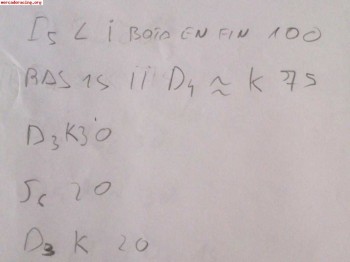 mercadoracing.org
I5 < i BOID EN FIN 100
BAS 15 ii D4 ≈ K 75
D3 K30
56 20
D3 K 20